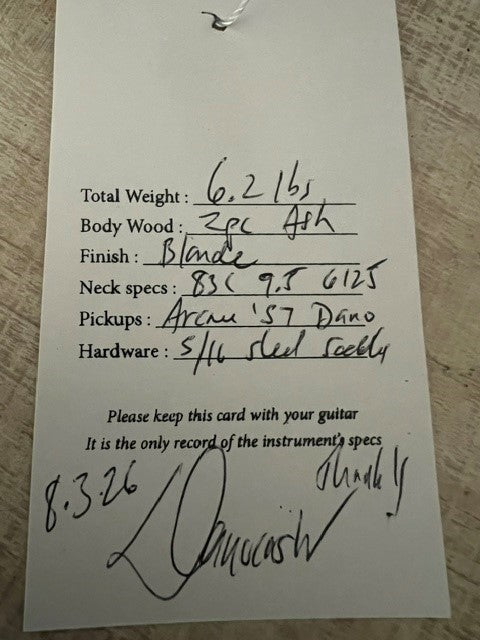 Total Weight : 6.2 lbs
Body Wood : 2pc Ash
Finish : Blonde
Neck specs : 83C 9.5 6125
Pickups : Arcane '57 Dano
Hardware : 5/16 steel saddles
Please keep this card with your guitar
It is the only record of the instrument's specs
8.3.26
Thanks